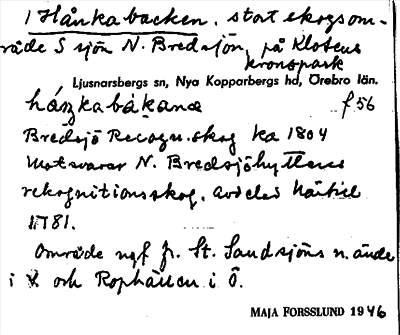 1 Hånkabacken, stort skogsom-
råde S sjön N. Bredsjön, på Klotens
kronopark
Ljusnarsbergs sn, Nya Kopparbergs hd, Örebro län.
f. 56
Bredsjö Recogn. skog ka 1804
Motsvarar N. Bredsjöhyttans
rekognitionsskog, avdelad
1781.
Område ngf fr. St. Sandsjöns n. ände
i V och Rophällen i Ö.
MAJA FORSSLUND 1946